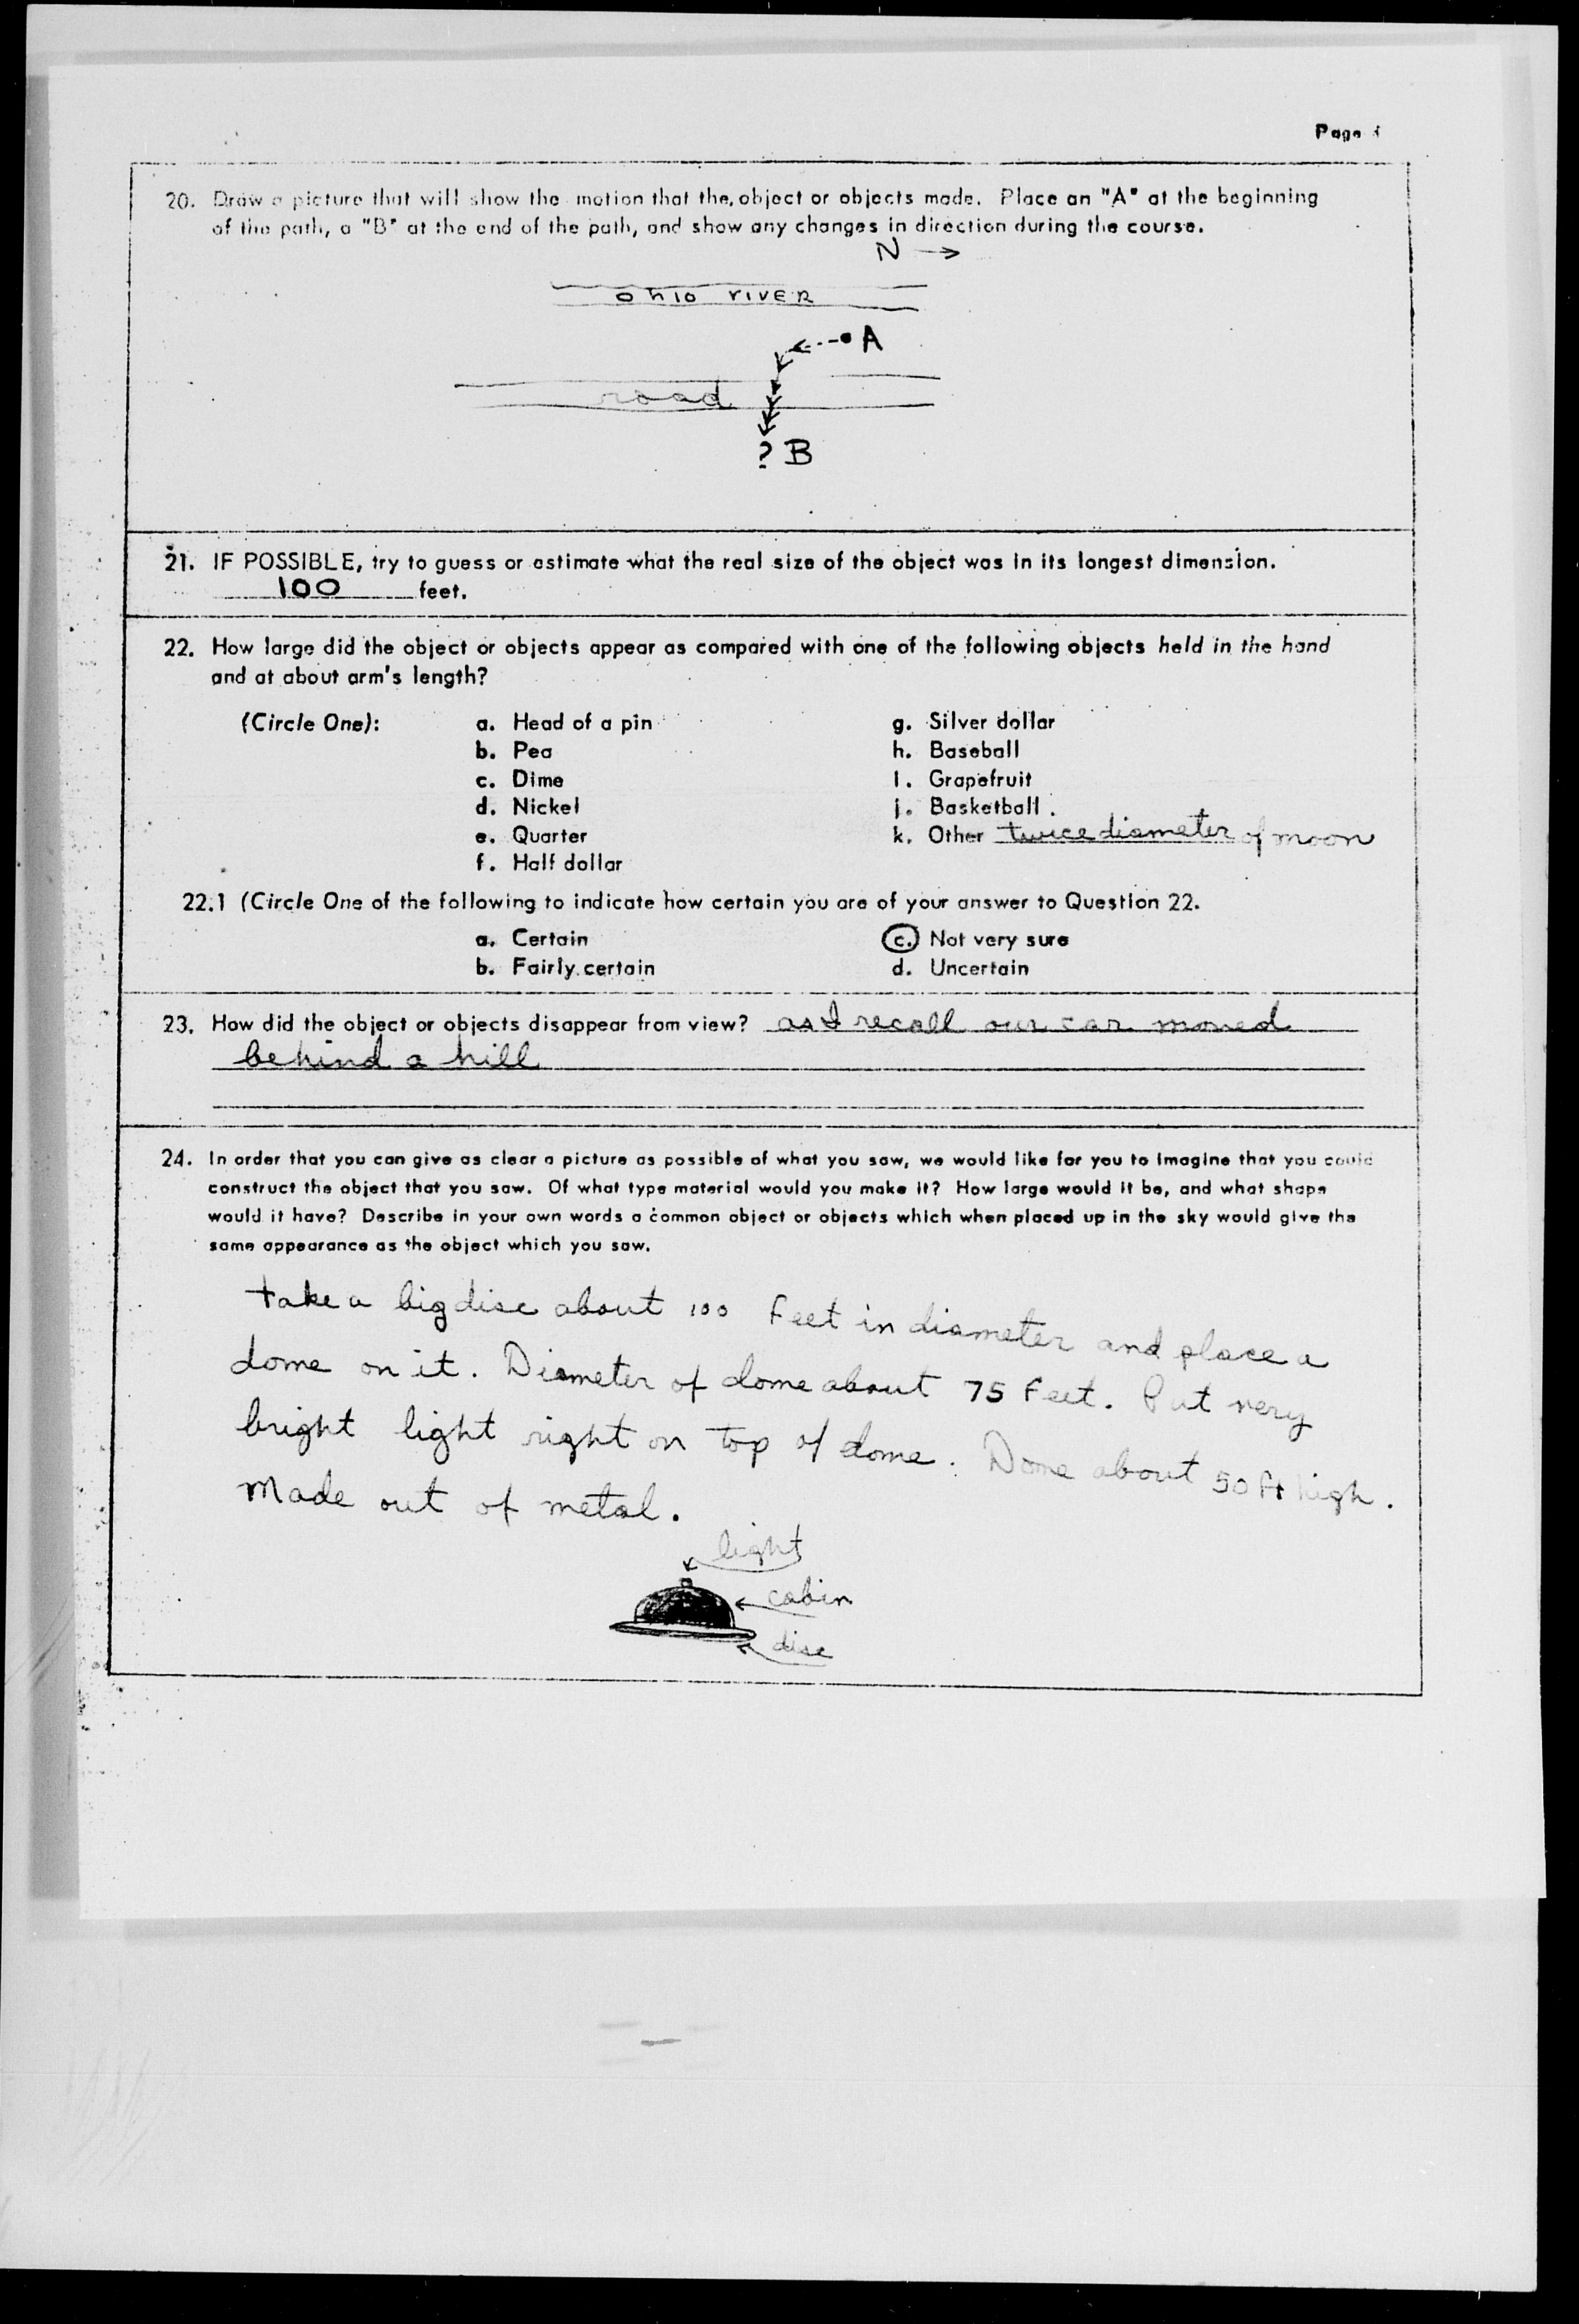 Page
20. Draw a picture that will show the motion that the object or objects made. Place an "A" at the beginning
of the path, a "B" at the end of the path, and show any changes in direction during the course.
N →
ohio river
A
road
? B
21. IF POSSIBLE, try to guess or estimate what the real size of the object was in its longest dimension.
100 feet.
22. How large did the object or objects appear as compared with one of the following objects held in the hand
and at about arm's length?
(Circle One): a. Head of a pin g. Silver dollar
b. Pea h. Baseball
c. Dime i. Grapefruit
d. Nickel j. Basketball
e. Quarter k. Other twice diameter of moon
f. Half dollar
22.1 (Circle One of the following to indicate how certain you are of your answer to Question 22.
a. Certain c. Not very sure
b. Fairly certain d. Uncertain
23. How did the object or objects disappear from view? as I recall our car moved
behind a hill
24. In order that you can give as clear a picture as possible of what you saw, we would like for you to imagine that you could
construct the object that you saw. Of what type material would you make it? How large would it be, and what shape
would it have? Describe in your own words a common object or objects which when placed up in the sky would give the
same appearance as the object which you saw.
take a big disc about 100 feet in diameter and place a
dome on it. Diameter of dome about 75 feet. Put very
bright light right on top of dome. Dome about 50 ft high.
Made out of metal.
light
cabin
disc